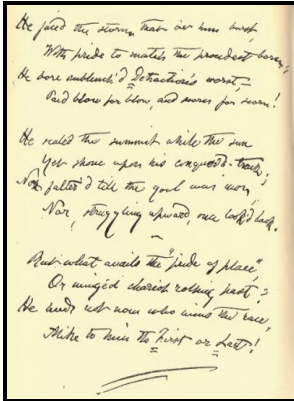 He faced the storm that o'er him burst,
With pride to match the proudest born;
He bore unblench'd Detraction's worst,—
Paid blow for blow, and scorn for scorn!
He scaled the summit while the sun
Yet shone upon his conquer'd track;
Nor falter'd till the goal was won,
Nor, struggling upward, once look'd back.
But what avails the "pride of place",
Or wingéd chariot rolling past?
He heeds not now who wins the race,
Alike to him the First or Last!